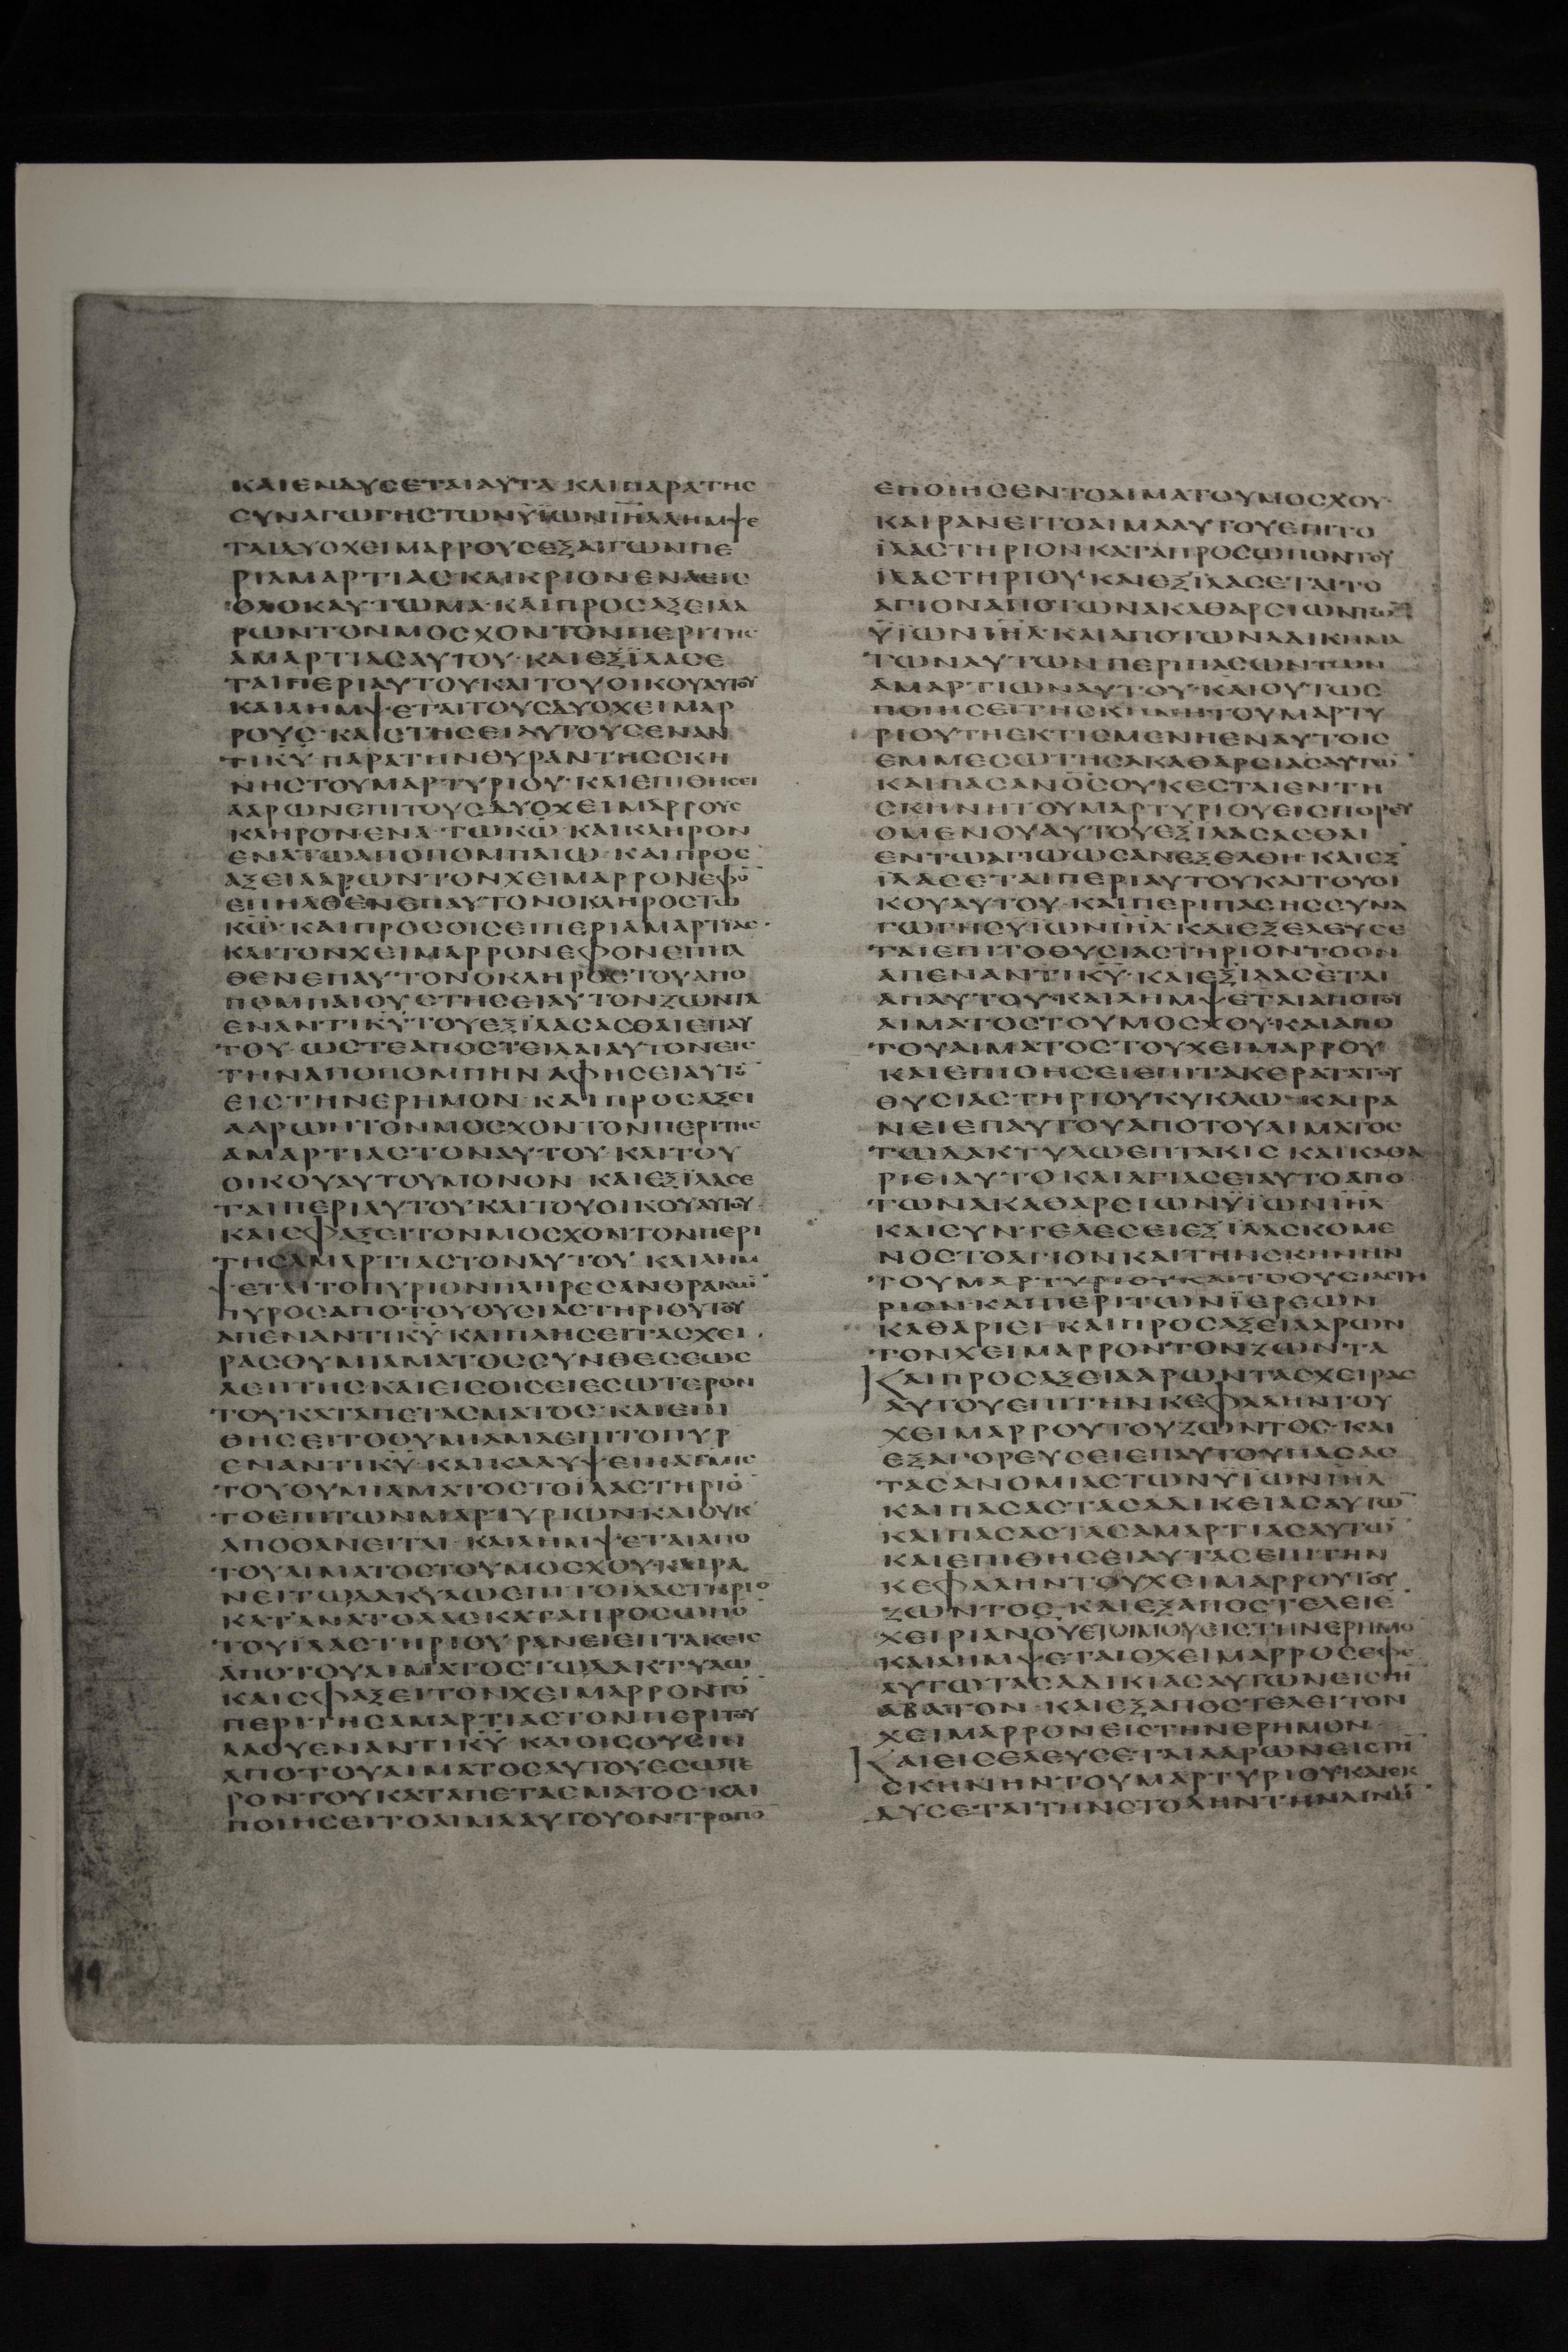 ΚΑΙΕΝΔΥΣΕΤΑΙΑΥΤΑ·ΚΑΙΠΑΡΑΤΗΣ
ΣΥΝΑΓΩΓΗΣΤΩΝΫΙΩΝΙΗΛΛΗΜΨΕ
ΤΑΙΔΥΟΧΕΙΜΑΡΡΟΥΣΕΞΑΙΓΩΝΠΕ
ΡΙΑΜΑΡΤΙΑΣΚΑΙΚΡΙΟΝΕΝΑΕΙΣ
ΟΛΟΚΑΥΤΩΜΑ·ΚΑΙΠΡΟΣΑΞΕΙΑΑ
ΡΩΝΤΟΝΜΟΣΧΟΝΤΟΝΠΕΡΙΤΗΣ
ΑΜΑΡΤΙΑΣΑΥΤΟΥ·ΚΑΙΕΞΪΛΑΣΕ
ΤΑΙΠΕΡΙΑΥΤΟΥΚΑΙΤΟΥΟΙΚΟΥΑΥΤΟΥ
ΚΑΙΛΗΜΨΕΤΑΙΤΟΥΣΔΥΟΧΕΙΜΑΡ
ΡΟΥΣ·ΚΑΙΣΤΗΣΕΙΑΥΤΟΥΣΕΝΑΝ
ΤΙΚΥ ΠΑΡΑΤΗΝΘΥΡΑΝΤΗΣΣΚΗ
ΝΗΣΤΟΥΜΑΡΤΥΡΙΟΥ·ΚΑΙΕΠΙΘΗΣΕΙ
ΑΑΡΩΝΕΠΙΤΟΥΣΔΥΟΧΕΙΜΑΡΡΟΥΣ
ΚΛΗΡΟΝΕΝΑ·ΤΩΚΩ·ΚΑΙΚΛΗΡΟΝ
ΕΝΑΤΩΑΠΟΠΟΜΠΑΙΩ·ΚΑΙΠΡΟΣ
ΑΞΕΙΑΑΡΩΝΤΟΝΧΕΙΜΑΡΡΟΝΕΦΟ̅
ΕΠΗΛΘΕΝΕΠΑΥΤΟΝΟΚΛΗΡΟΣΤΩ
ΚΩ·ΚΑΙΠΡΟΣΟΙΣΕΙΠΕΡΙΑΜΑΡΤΙΑΣ·
ΚΑΙΤΟΝΧΕΙΜΑΡΡΟΝΕΦΟΝΕΠΗΛ
ΘΕΝΕΠΑΥΤΟΝΟΚΛΗΡΟΣΤΟΥΑΠΟ
ΠΟΜΠΑΙΟΥΣΤΗΣΕΙΑΥΤΟΝΖΩΝΤΑ
ΕΝΑΝΤΙΚΥΤΟΥΕΞΪΛΑΣΑΣΘΑΙΕΠΑΥ
ΤΟΥ·ΩΣΤΕΑΠΟΣΤΕΙΛΑΙΑΥΤΟΝΕΙΣ
ΤΗΝΑΠΟΠΟΜΠΗΝΑΦΗΣΕΙΑΥΤΟ̅
ΕΙΣΤΗΝΕΡΗΜΟΝ·ΚΑΙΠΡΟΣΑΞΕΙ
ΑΑΡΩΝΤΟΝΜΟΣΧΟΝΤΟΝΠΕΡΙΤΗΣ
ΑΜΑΡΤΙΑΣΤΟΝΑΥΤΟΥ·ΚΑΙΤΟΥ
ΟΙΚΟΥΑΥΤΟΥΜΟΝΟΝ·ΚΑΙΕΞΪΛΑΣΕ
ΤΑΙΠΕΡΙΑΥΤΟΥΚΑΙΤΟΥΟΙΚΟΥΑΥΤΟΥ·
ΚΑΙΣΦΑΞΕΙΤΟΝΜΟΣΧΟΝΤΟΝΠΕΡΙ
ΤΗΣΑΜΑΡΤΙΑΣΤΟΝΑΥΤΟΥ·ΚΑΙΛΗΜ
ΨΕΤΑΙΤΟΠΥΡΙΟΝΠΛΗΡΕΣΑΝΘΡΑΚΩ̅
ΠΥΡΟΣΑΠΟΤΟΥΘΥΣΙΑΣΤΗΡΙΟΥΤΟΥ
ΑΠΕΝΑΝΤΙΚΥΚΑΙΠΛΗΣΕΙΤΑΣΧΕΙ
ΡΑΣΘΥΜΙΑΜΑΤΟΣΣΥΝΘΕΣΕΩΣ
ΛΕΠΤΗΣ·ΚΑΙΕΙΣΟΙΣΕΙΕΣΩΤΕΡΟΝ
ΤΟΥΚΑΤΑΠΕΤΑΣΜΑΤΟΣ·ΚΑΙΕΠΙ
ΘΗΣΕΙΤΟΘΥΜΙΑΜΑΕΠΙΤΟΠΥΡ
ΕΝΑΝΤΙΚΥ·ΚΑΙΚΑΛΥΨΕΙΗΑΤΜΙΣ
ΤΟΥΘΥΜΙΑΜΑΤΟΣΤΟΪΛΑΣΤΗΡΙΟ̅
ΤΟΕΠΙΤΩΝΜΑΡΤΥΡΙΩΝΚΑΙΟΥΚ
ΑΠΟΘΑΝΕΙΤΑΙ·ΚΑΙΛΗΜΨΕΤΑΙΑΠΟ
ΤΟΥΑΙΜΑΤΟΣΤΟΥΜΟΣΧΟΥΚΑΙΡΑ
ΝΕΙΤΩΔΑΚΥΛΩΕΠΙΤΟΙΛΑΣΤΗΡΙΟ
ΚΑΤΑΝΑΤΟΛΑΣΚΑΤΑΠΡΟΣΩΠΟ̅
ΤΟΥΪΛΑΣΤΗΡΙΟΥ·ΡΑΝΕΙΕΠΤΑΚΕΙΣ
ΑΠΟΤΟΥΑΙΜΑΤΟΣΤΩΔΑΚΤΥΛΩ
ΚΑΙΣΦΑΞΕΙΤΟΝΧΕΙΜΑΡΡΟΝΤΟ̅
ΠΕΡΙΤΗΣΑΜΑΡΤΙΑΣΤΟΝΠΕΡΙΤΟΥ
ΛΑΟΥΕΝΑΝΤΙΚΥ ΚΑΙΟΙΣΟΥΣΙΝ
ΑΠΟΤΟΥΑΙΜΑΤΟΣΑΥΤΟΥΕΣΩΤΕ
ΡΟΝΤΟΥΚΑΤΑΠΕΤΑΣΜΑΤΟΣ·ΚΑΙ
ΠΟΙΗΣΕΙΤΟΑΙΜΑΑΥΤΟΥΟΝΤΡΟΠΟ̅
ΕΠΟΙΗΣΕΝΤΟΑΙΜΑΤΟΥΜΟΣΧΟΥ·
ΚΑΙΡΑΝΕΙΤΟΑΙΜΑΑΥΤΟΥΕΠΙΤΟ
ΪΛΑΣΤΗΡΙΟΝΚΑΤΑΠΡΟΣΩΠΟΝΤΟΥ
ΪΛΑΣΤΗΡΙΟΥΚΑΙΕΞΪΛΑΣΕΤΑΙΤΟ
ΑΓΙΟΝΑΠΟΤΩΝΑΚΑΘΑΡΣΙΩΝΤΩ̅
ΫΪΩΝΙΗΛ·ΚΑΙΑΠΟΤΩΝΑΔΙΚΗΜΑ
ΤΩΝΑΥΤΩΝΠΕΡΙΠΑΣΩΝΤΩΝ
ΑΜΑΡΤΙΩΝΑΥΤΟΥ·ΚΑΙΟΥΤΩΣ
ΠΟΙΗΣΕΙΤΗΣΚΗΝΗΤΟΥΜΑΡΤΥ
ΡΙΟΥΤΗΕΚΤΙΣΜΕΝΗΕΝΑΥΤΟΙΣ
ΕΜΜΕΣΩΤΗΣΑΚΑΘΑΡΣΙΑΣΑΥΤΩ̅
ΚΑΙΠΑΣΑΝΟΣΟΥΚΕΣΤΑΙΕΝΤΗ
ΣΚΗΝΗΤΟΥΜΑΡΤΥΡΙΟΥΕΙΣΠΟΡΕΥ
ΟΜΕΝΟΥΑΥΤΟΥΕΞΪΛΑΣΑΣΘΑΙ
ΕΝΤΩΑΓΙΩΩΣΑΝΕΞΕΛΘΗ·ΚΑΙΕΞ
ΪΛΑΣΕΤΑΙΠΕΡΙΑΥΤΟΥΚΑΙΤΟΥΟΙ
ΚΟΥΑΥΤΟΥ·ΚΑΙΠΕΡΙΠΑΣΗΣΣΥΝΑ
ΓΩΓΗΣΥΪΩΝΙΗΛ·ΚΑΙΕΞΕΛΕΥΣΕ
ΤΑΙΕΠΙΤΟΘΥΣΙΑΣΤΗΡΙΟΝΤΟΟΝ
ΑΠΕΝΑΝΤΙΚΥ·ΚΑΙΕΞΪΛΑΣΕΤΑΙ
ΑΠΑΥΤΟΥ·ΚΑΙΛΗΜΨΕΤΑΙΑΠΟΤΟΥ
ΑΙΜΑΤΟΣΤΟΥΜΟΣΧΟΥ·ΚΑΙΑΠΟ
ΤΟΥΑΙΜΑΤΟΣΤΟΥΧΕΙΜΑΡΡΟΥ
ΚΑΙΕΠΙΘΗΣΕΙΕΠΙΤΑΚΕΡΑΤΑΤΟΥ
ΘΥΣΙΑΣΤΗΡΙΟΥΚΥΚΛΩ·ΚΑΙΡΑ
ΝΕΙΕΠΑΥΤΟΥΑΠΟΤΟΥΑΙΜΑΤΟΣ
ΤΩΔΑΚΤΥΛΩΕΠΤΑΚΙΣ ΚΑΙΚΑΘΑ
ΡΙΕΙΑΥΤΟΚΑΙΑΓΙΑΣΕΙΑΥΤΟΑΠΟ
ΤΩΝΑΚΑΘΑΡΣΙΩΝΥΪΩΝΙΗΛ
ΚΑΙΣΥΝΤΕΛΕΣΕΙΕΞΪΛΑΣΚΟΜΕ
ΝΟΣΤΟΑΓΙΟΝΚΑΙΤΗΝΣΚΗΝΗΝ
ΤΟΥΜΑΡΤΥΡΙΟΥΚΑΙΤΟΘΥΣΙΑΣΤΗ
ΡΙΟΝ·ΚΑΙΠΕΡΙΤΩΝΪΕΡΕΩΝ
ΚΑΘΑΡΙΕΙ·ΚΑΙΠΡΟΣΑΞΕΙΑΑΡΩΝ
ΤΟΝΧΕΙΜΑΡΡΟΝΤΟΝΖΩΝΤΑ
ΚΑΙΠΡΟΣΑΞΕΙΑΑΡΩΝΤΑΣΧΕΙΡΑΣ
ΑΥΤΟΥΕΠΙΤΗΝΚΕΦΑΛΗΝΤΟΥ
ΧΕΙΜΑΡΡΟΥΤΟΥΖΩΝΤΟΣ·ΚΑΙ
ΕΞΑΓΟΡΕΥΣΕΙΕΠΑΥΤΟΥΠΑΣΑΣ
ΤΑΣΑΝΟΜΙΑΣΤΩΝΥΪΩΝΙΗΛ
ΚΑΙΠΑΣΑΣΤΑΣΑΔΙΚΕΙΑΣΑΥΤΩ̅
ΚΑΙΠΑΣΑΣΤΑΣΑΜΑΡΤΙΑΣΑΥΤΩ̅
ΚΑΙΕΠΙΘΗΣΕΙΑΥΤΑΣΕΠΙΤΗΝ
ΚΕΦΑΛΗΝΤΟΥΧΕΙΜΑΡΡΟΥΤΟΥ
ΖΩΝΤΟΣ·ΚΑΙΕΞΑΠΟΣΤΕΛΕΙΕ̅
ΧΕΙΡΙΑΝΟΥΕΤΟΙΜΟΥΕΙΣΤΗΝΕΡΗΜΟ̅
ΚΑΙΛΗΜΨΕΤΑΙΟΧΕΙΜΑΡΡΟΣΕΦΕ
ΑΥΤΩΤΑΣΑΔΙΚΙΑΣΑΥΤΩΝΕΙΣΓΗ̅
ΑΒΑΤΟΝ·ΚΑΙΕΞΑΠΟΣΤΕΛΕΙΤΟΝ
ΧΕΙΜΑΡΡΟΝΕΙΣΤΗΝΕΡΗΜΟΝ·
ΚΑΙΕΙΣΕΛΕΥΣΕΤΑΙΑΑΡΩΝΕΙΣΤΗ̅
ΣΚΗΝΗΝΤΟΥΜΑΡΤΥΡΙΟΥΚΑΙΕΚ
ΔΥΣΕΤΑΙΤΗΝΣΤΟΛΗΝΤΗΝΛΙΝΗ̅